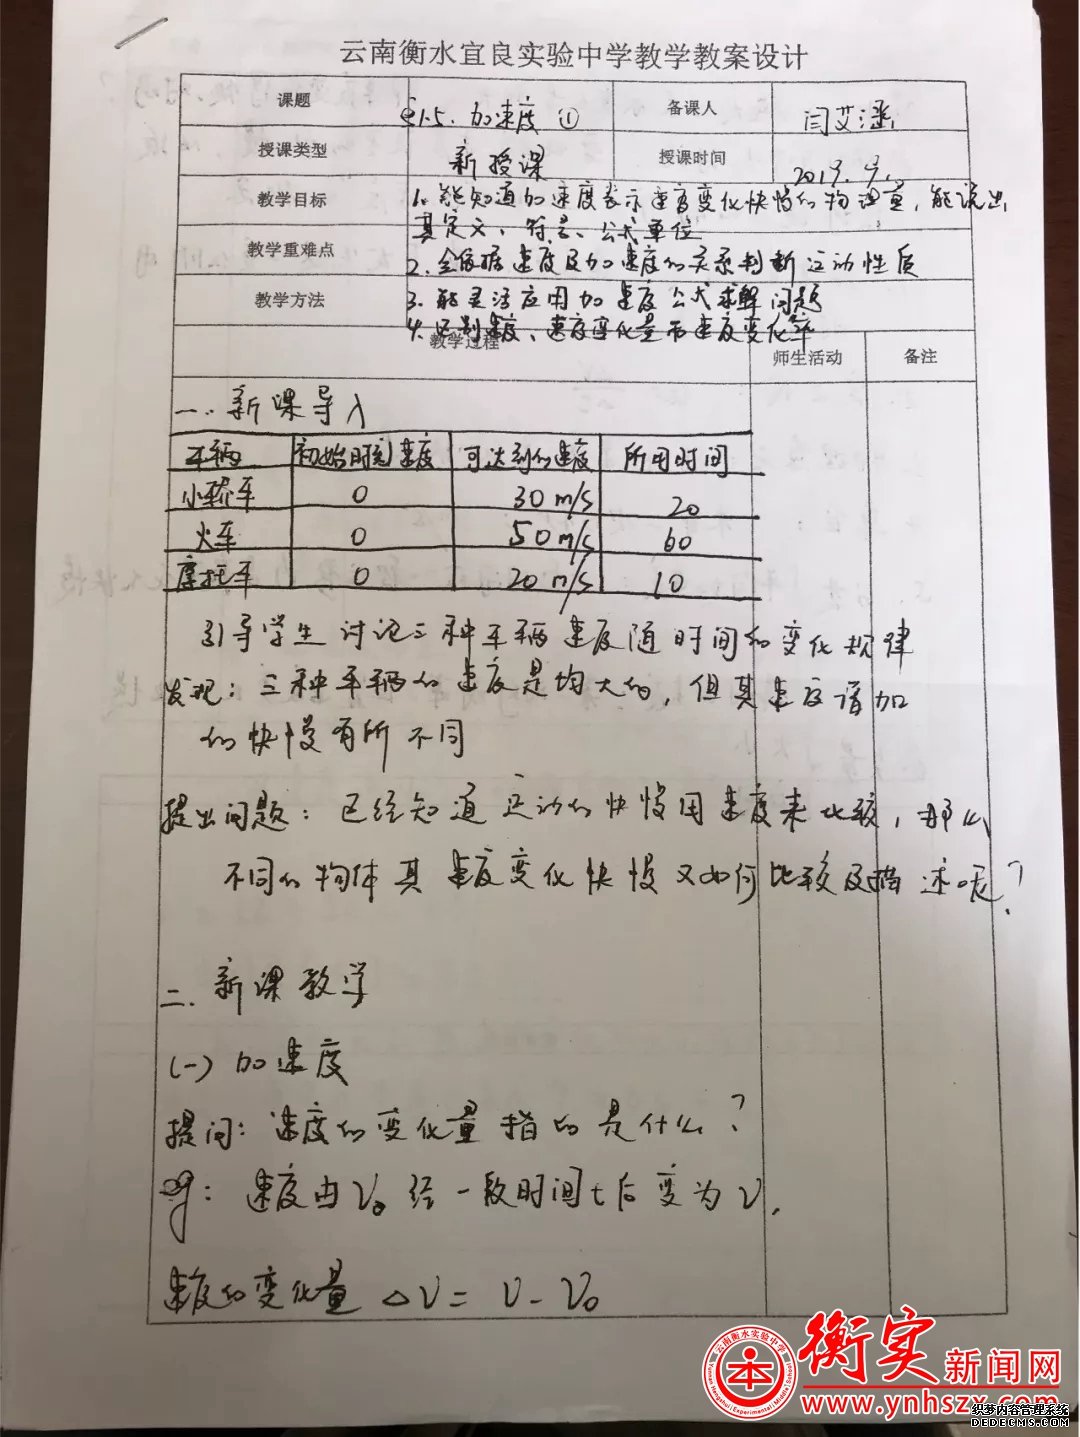 云南衡水宜良实验中学教学教案设计
课题 §1.5. 加速度 ① 备课人 闫艾潘
授课类型 新授课 授课时间 2019.9.
教学目标 1. 能知道加速度表示速度变化快慢的物理量，能说出
其定义、符号、公式单位
教学重难点 2. 会依据速度及加速度的关系判断运动性质
教学方法 3. 能灵活应用加速度公式求解问题
4. 区别速度、速度变化量和速度变化率
教学过程 师生活动 备注
一.新课导入
车辆 初始时刻速度 可达到的速度 所用时间
小轿车 0 30 m/s 20
火车 0 50 m/s 60
摩托车 0 20 m/s 10
引导学生讨论三种车辆速度随时间的变化规律
发现：三种车辆的速度是增大的，但其速度增加
的快慢有所不同
提出问题：已经知道运动的快慢用速度来比较，那么
不同的物体其速度变化快慢又如何比较及描述呢？
二.新课教学
(一) 加速度
提问：速度的变化量指的是什么？
eg：速度由V₀经一段时间t后变为V.
速度的变化量 △V = V - V₀
云南衡水实验中学
本
衡实新闻网
www.ynhszx.com
织梦内容管理系统
DEDECMS.COM